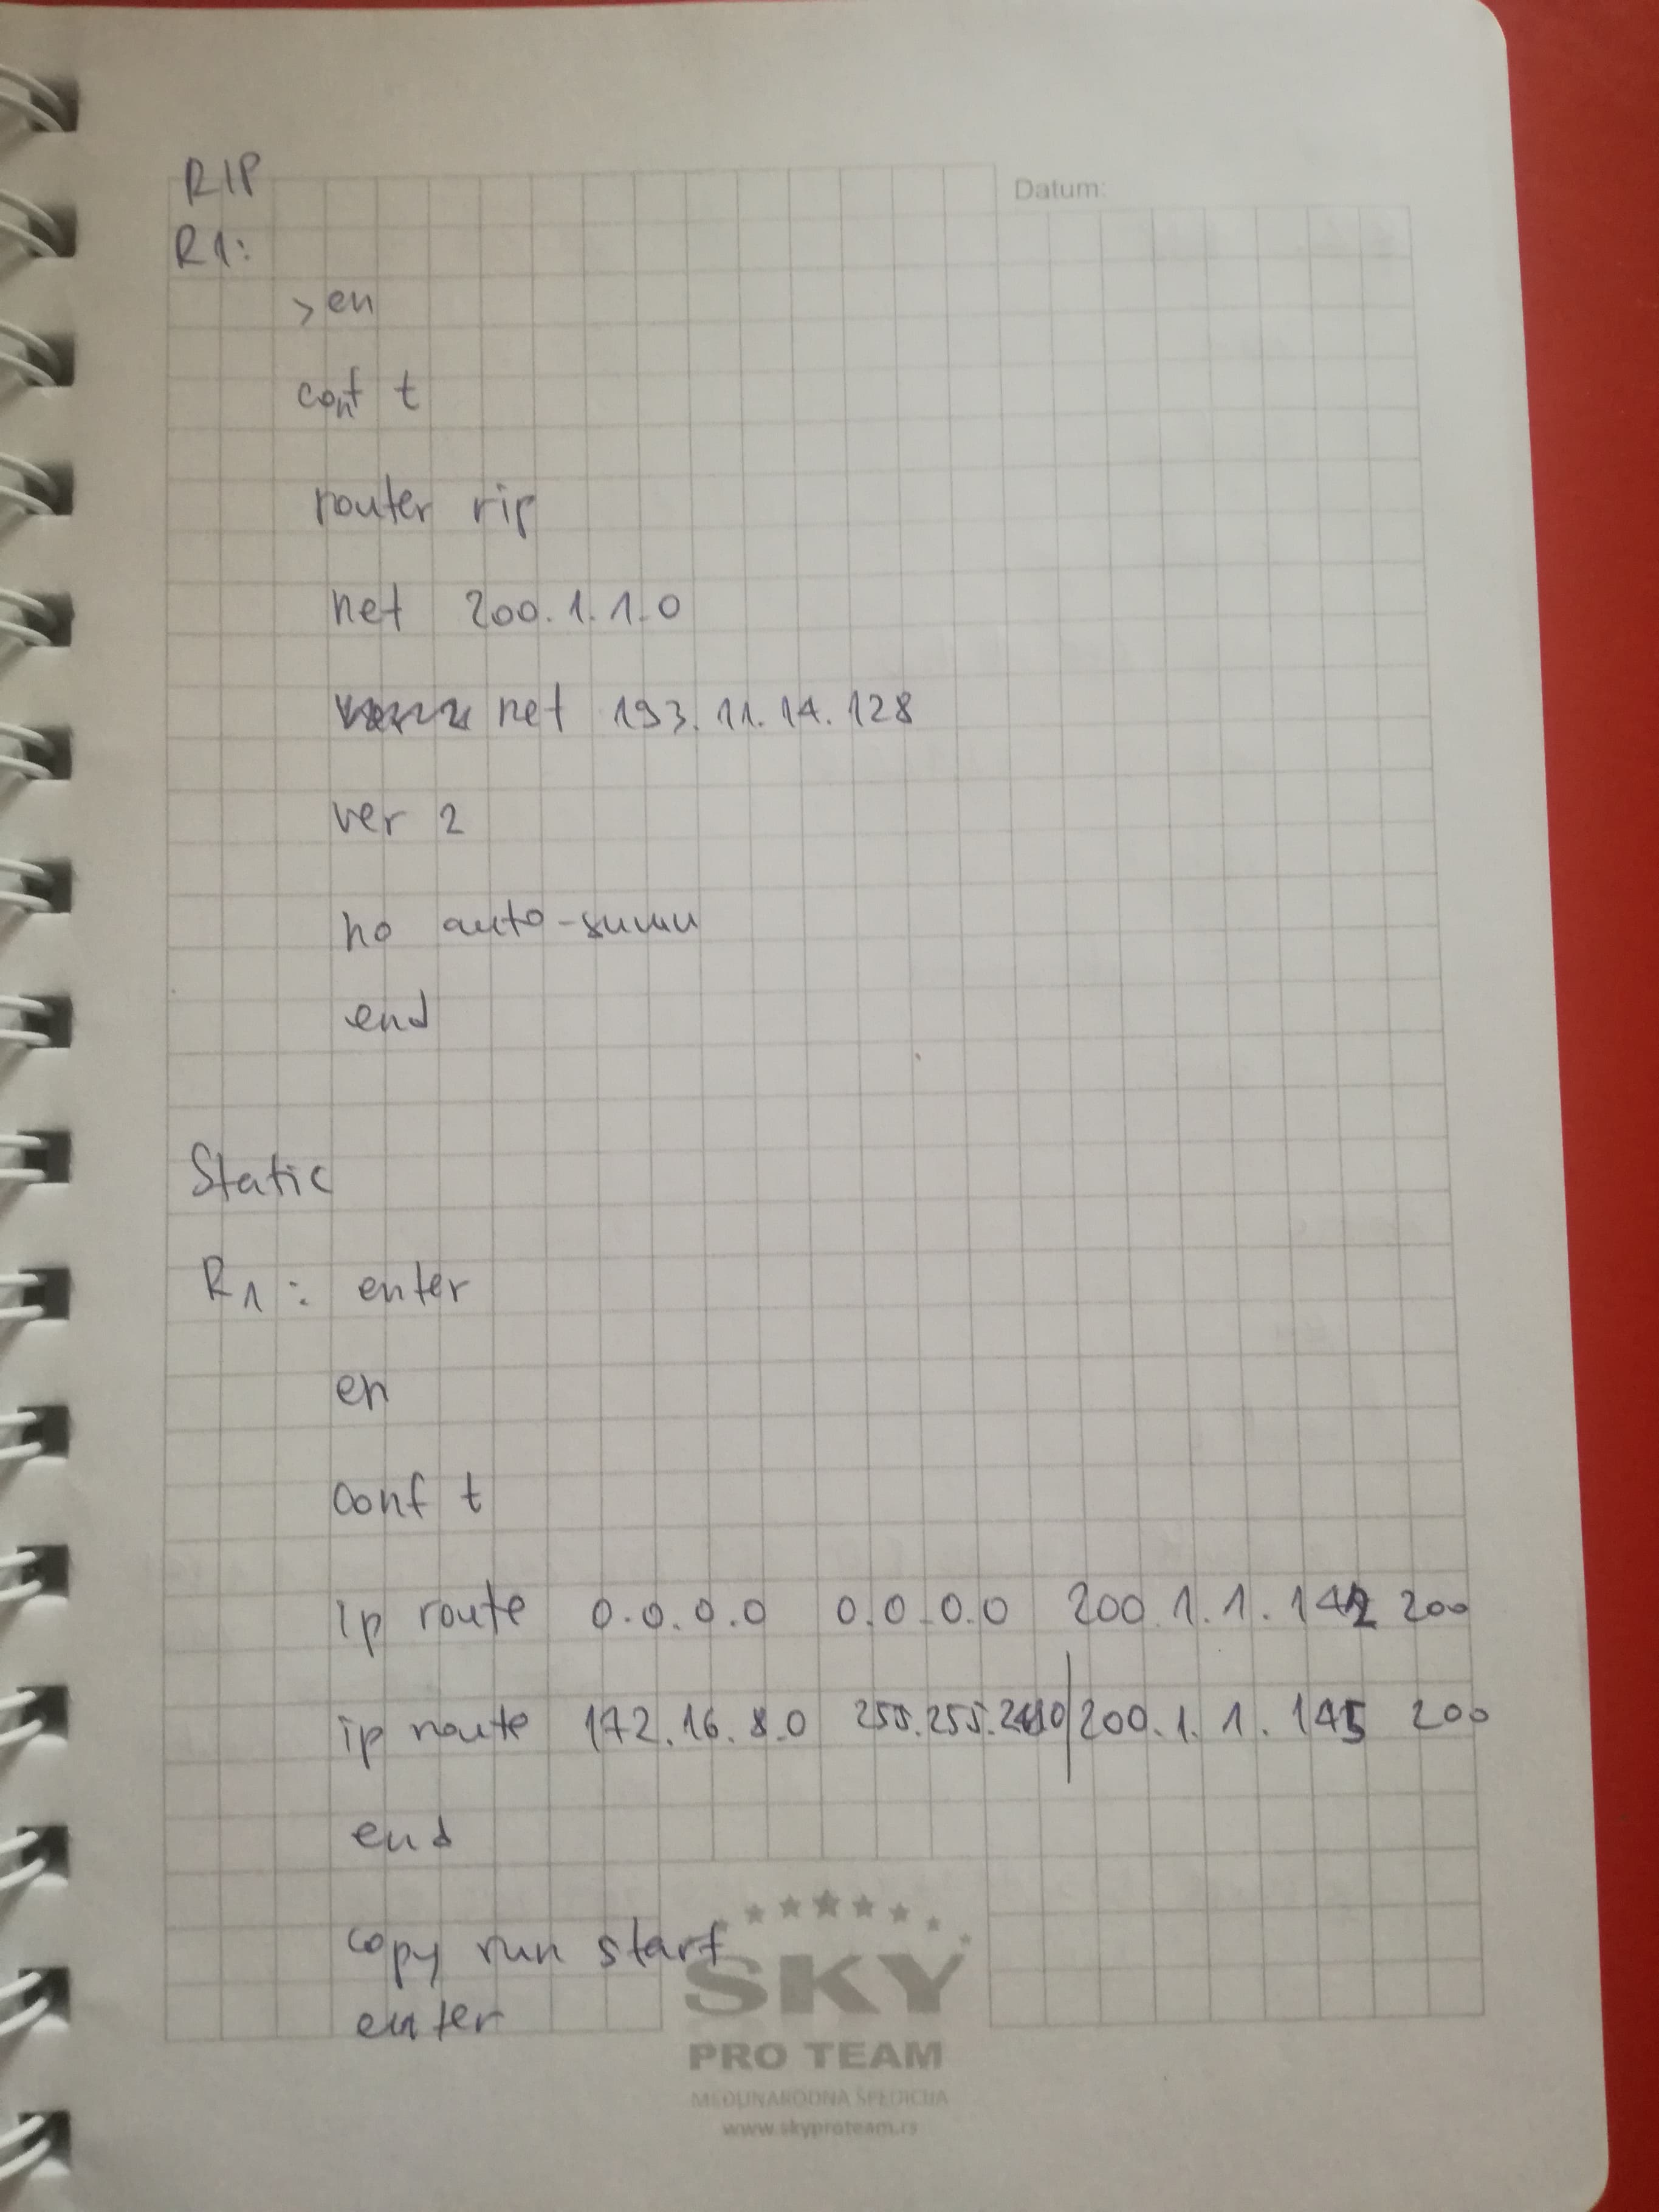 RIP
Datum:
R1:
>en
conf t
router rip
net 200.1.1.0
net 193.11.14.128
ver 2
no auto-summ
end
Static
R1: enter
en
conf t
ip route 0.0.0.0 0.0.0.0 200.1.1.142 200
ip route 172.16.8.0 255.255. 200.1.1.145 200
end
copy run start
enter
SKY
PRO TEAM
MEĐUNARODNA ŠPEDICIJA
www.skyproteam.rs